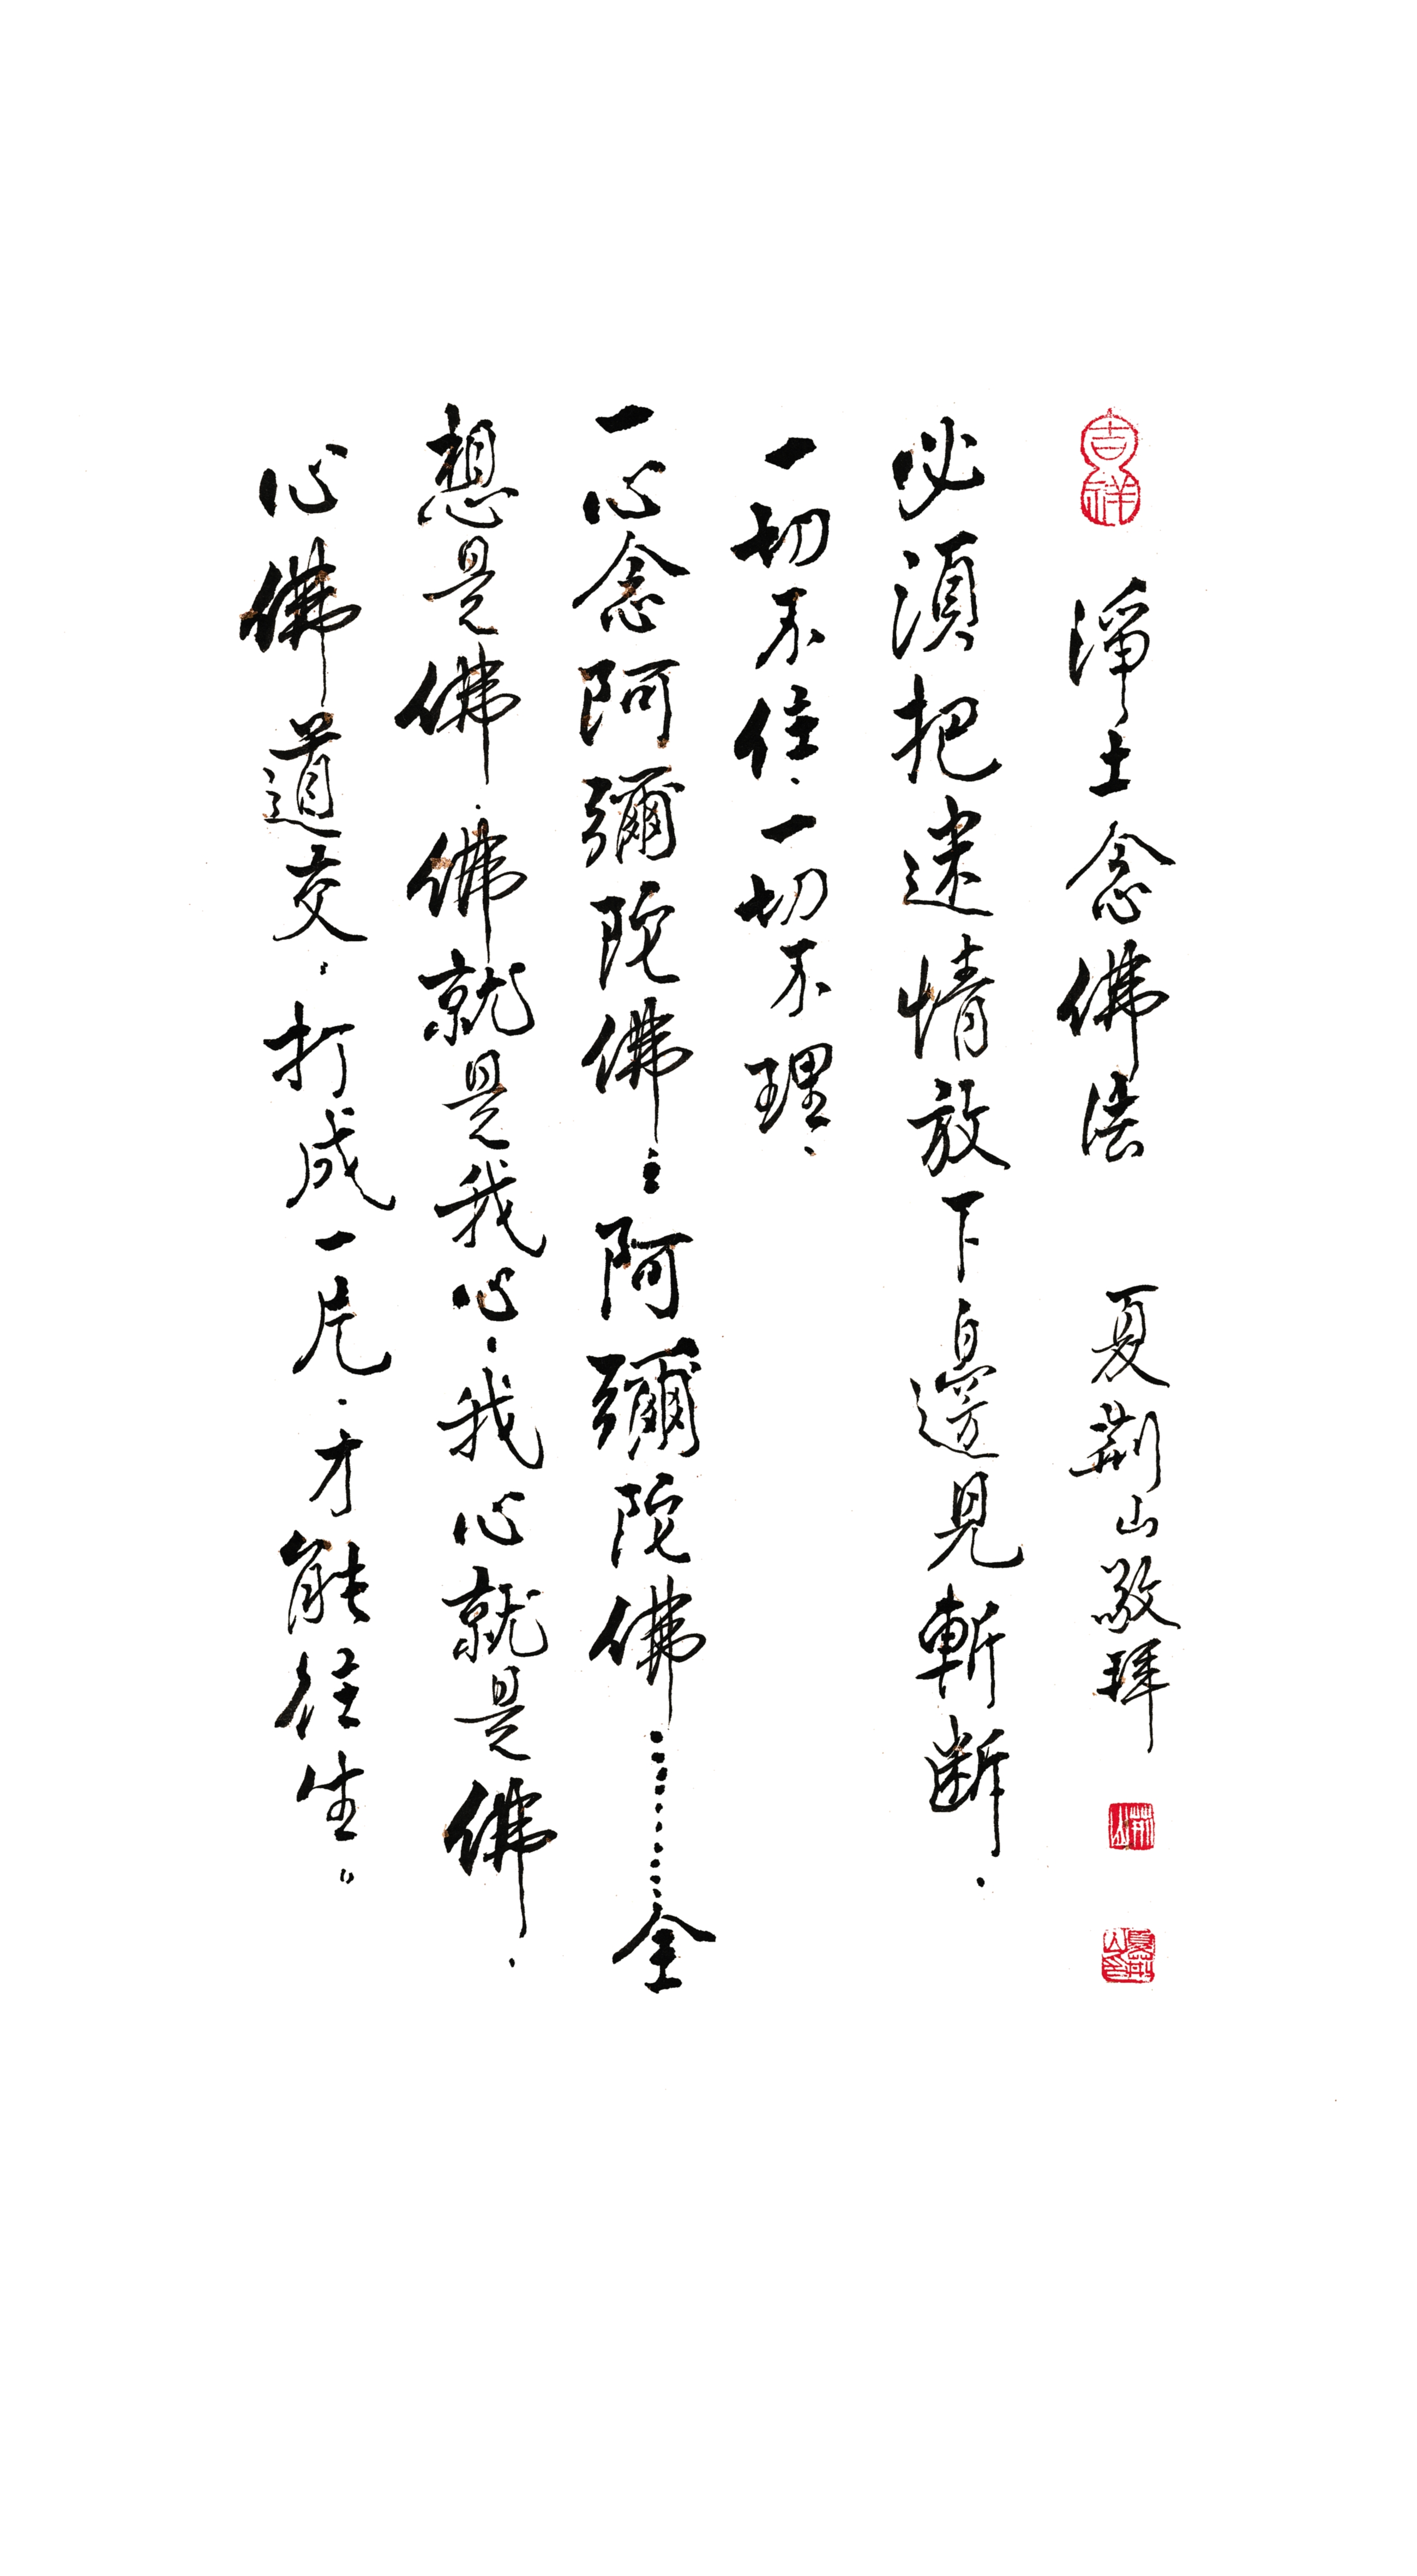 吉祥
淨土念佛法 夏荊山敬拜
荊山
夏荊山印
必須把迷情放下邊見斬斷.
一切不住.一切不理.
一心念阿彌陀佛…阿彌陀佛…………全
想是佛.佛就是我心.我心就是佛.
心佛道交.打成一片.才能往生。